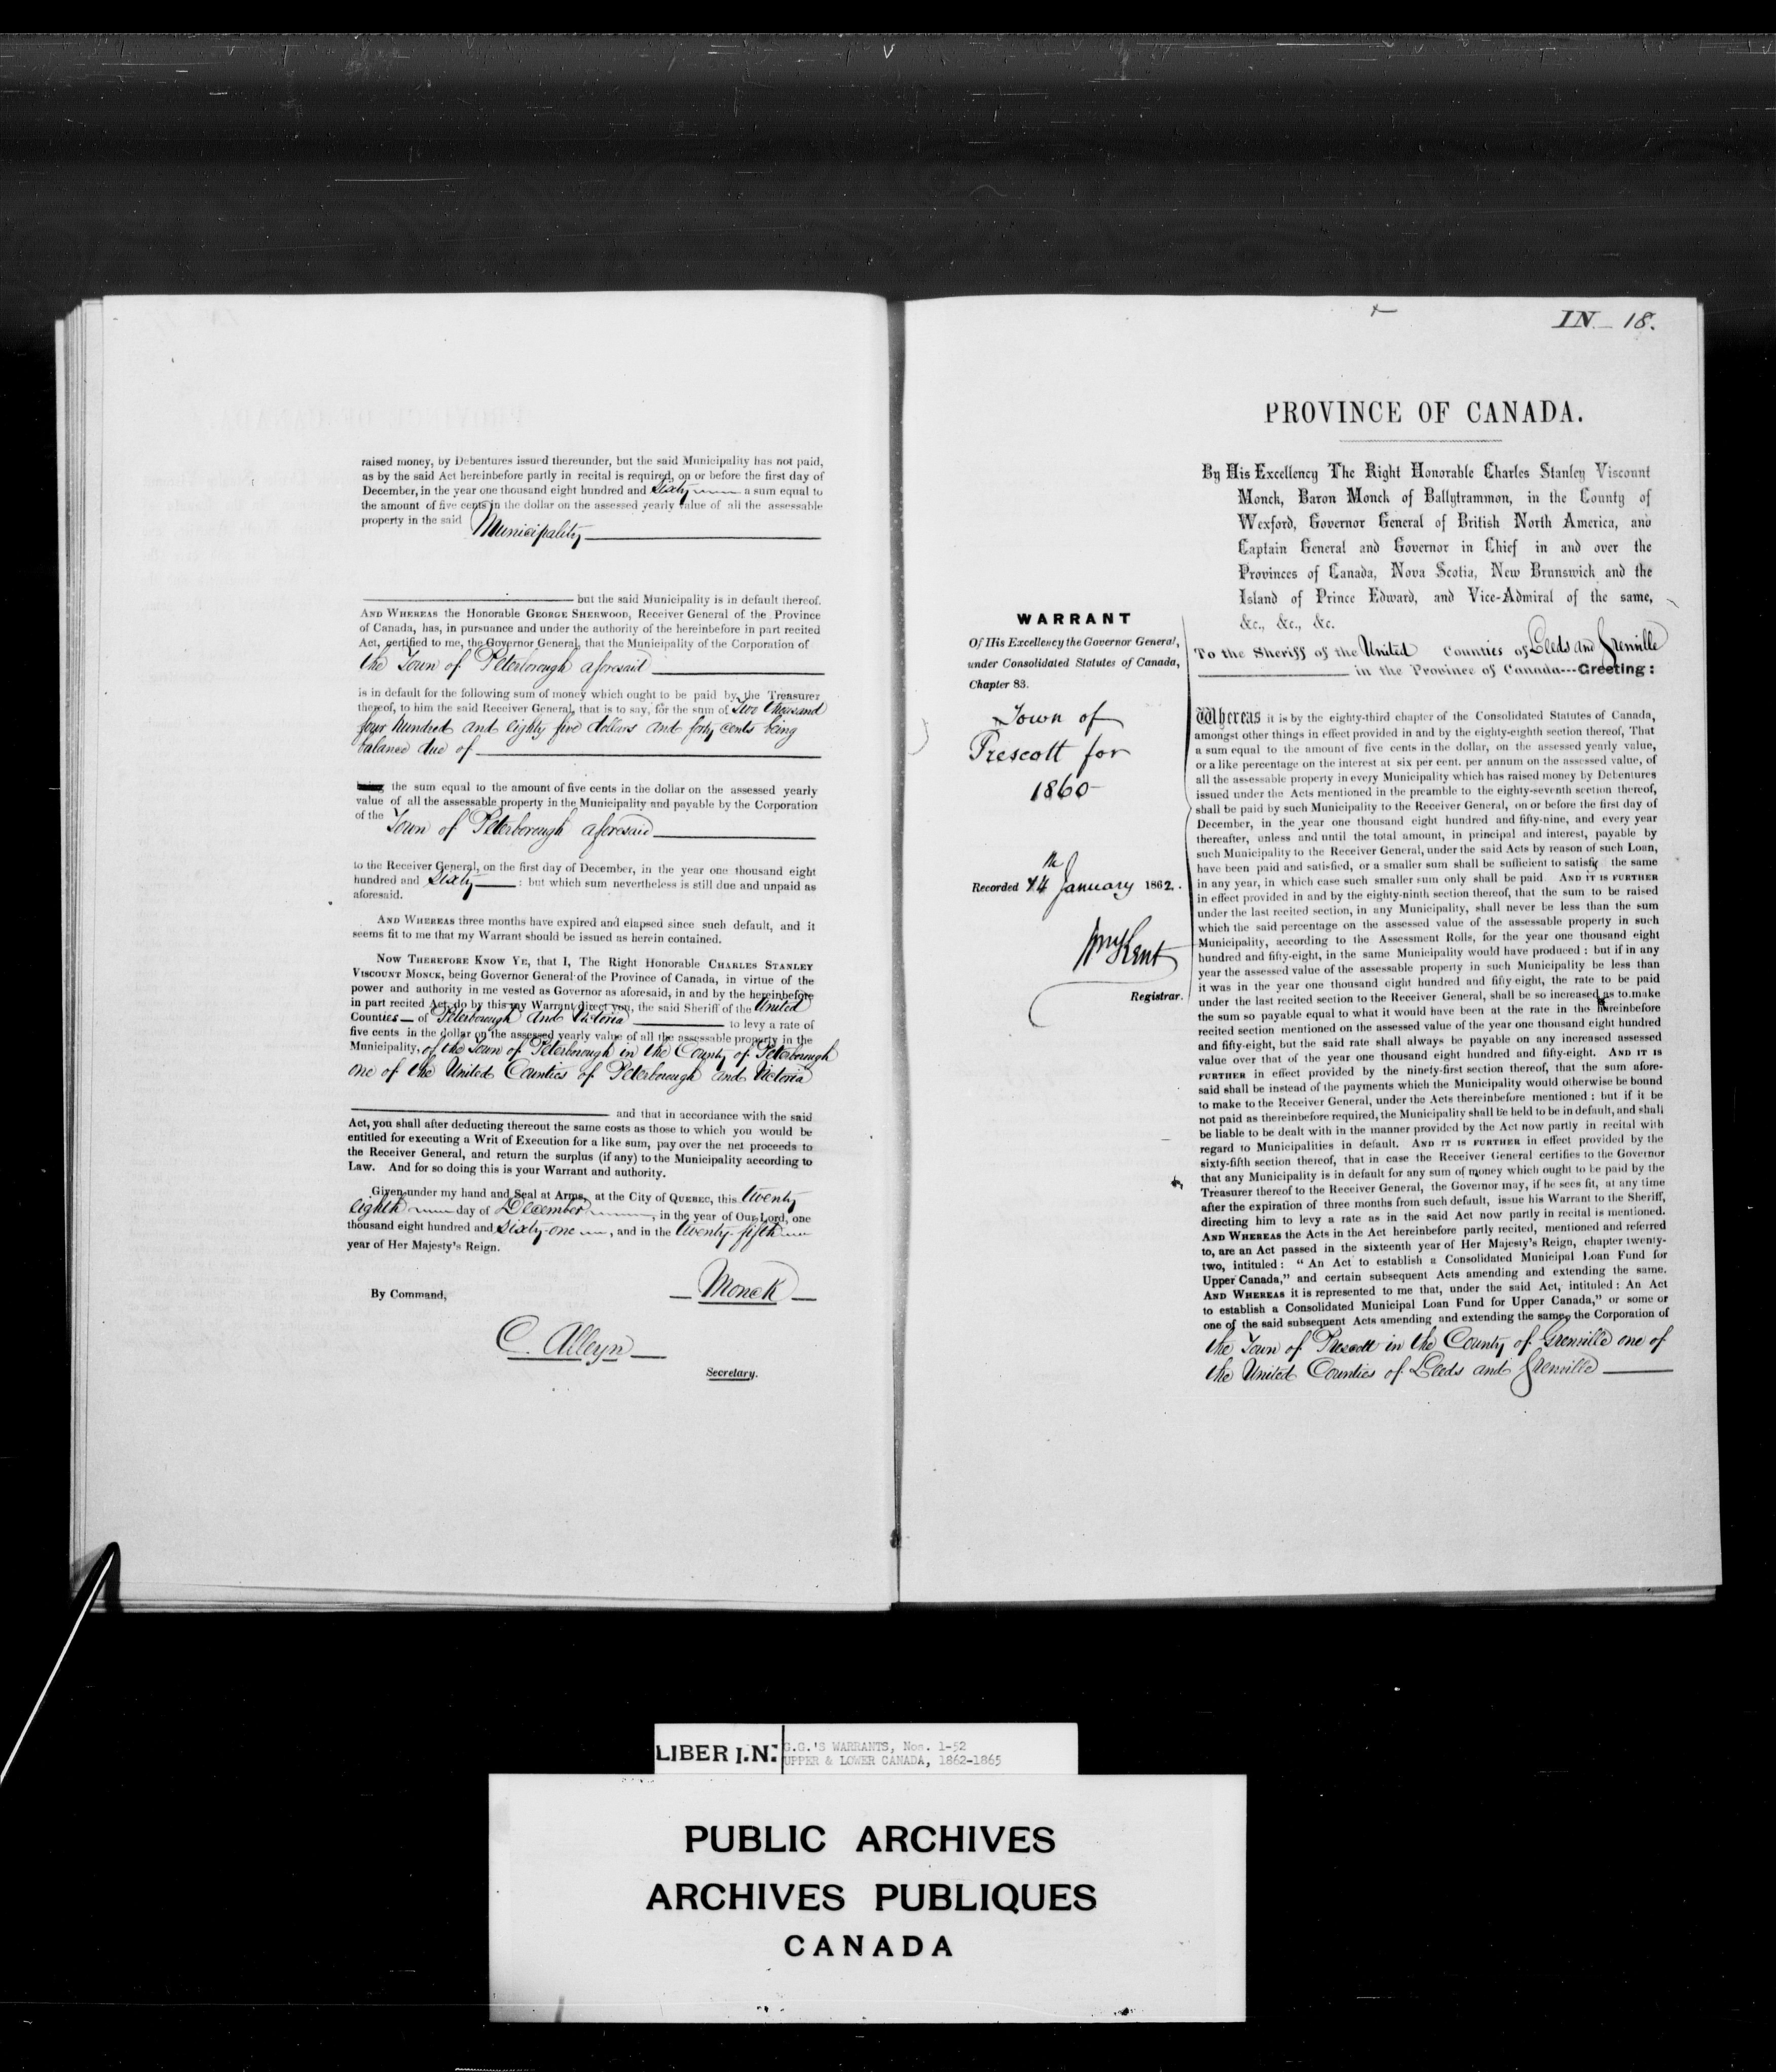 raised money, by Debentures issued thereunder, but the said Municipality has not paid,
as by the said Act hereinbefore partly in recital is required, on or before the first day of
December, in the year one thousand eight hundred and Sixty a sum equal to
the amount of five cents in the dollar on the assessed yearly value of all the assessable
property in the said Municipality
but the said Municipality is in default thereof.
AND WHEREAS the Honorable GEORGE SHERWOOD, Receiver General of the Province
of Canada, has, in pursuance and under the authority of the hereinbefore in part recited
Act, certified to me, the Governor General, that the Municipality of the Corporation of
the Town of Peterborough aforesaid
is in default for the following sum of money which ought to be paid by the Treasurer
thereof, to him the said Receiver General, that is to say, for the sum of Two thousand
four hundred and eighty five dollars and forty cents being
balance due of
the sum equal to the amount of five cents in the dollar on the assessed yearly
value of all the assessable property in the Municipality and payable by the Corporation
of the Town of Peterborough aforesaid
to the Receiver General, on the first day of December, in the year one thousand eight
hundred and Sixty : but which sum nevertheless is still due and unpaid as
aforesaid.
AND WHEREAS three months have expired and elapsed since such default, and it
seems fit to me that my Warrant should be issued as herein contained.
NOW THEREFORE KNOW YE, that I, The Right Honorable CHARLES STANLEY
VISCOUNT MONCK, being Governor General of the Province of Canada, in virtue of the
power and authority in me vested as Governor as aforesaid, in and by the hereinbefore
in part recited Act, do by this my Warrant direct you, the said Sheriff of the United
Counties of Peterborough and Victoria to levy a rate of
five cents in the dollar on the assessed yearly value of all the assessable property in the
Municipality, of the Town of Peterborough in the County of Peterborough
one of the United Counties of Peterborough and Victoria
and that in accordance with the said
Act, you shall after deducting thereout the same costs as those to which you would be
entitled for executing a Writ of Execution for a like sum, pay over the net proceeds to
the Receiver General, and return the surplus (if any) to the Municipality according to
Law. And for so doing this is your Warrant and authority.
Given under my hand and Seal at Arms, at the City of QUEBEC, this twenty
eighth day of December, in the year of Our Lord, one
thousand eight hundred and sixty-one, and in the twenty-fifth
year of Her Majesty's Reign.
Monck
By Command,
C. Alleyn
Secretary.
IN - 18.
PROVINCE OF CANADA.
By His Excellency The Right Honorable Charles Stanley Viscount
Monck, Baron Monck of Ballytrammon, in the County of
Wexford, Governor General of British North America, and
Captain General and Governor in Chief in and over the
Provinces of Canada, Nova Scotia, New Brunswick and the
Island of Prince Edward, and Vice-Admiral of the same,
&c., &c., &c.
To the Sheriff of the United Counties of Leeds and Grenville
in the Province of Canada---Greeting:
WARRANT
Of His Excellency the Governor General,
under Consolidated Statutes of Canada,
Chapter 83.
Town of
Prescott for
1860
Recorded 14th January 1862.
Wm Kent
Registrar.
Whereas it is by the eighty-third chapter of the Consolidated Statutes of Canada,
amongst other things in effect provided in and by the eighty-eighth section thereof, That
a sum equal to the amount of five cents in the dollar, on the assessed yearly value,
or a like percentage on the interest at six per cent. per annum on the assessed value, of
all the assessable property in every Municipality which has raised money by Debentures
issued under the Acts mentioned in the preamble to the eighty-seventh section thereof,
shall be paid by such Municipality to the Receiver General, on or before the first day of
December, in the year one thousand eight hundred and fifty-nine, and every year
thereafter, unless and until the total amount, in principal and interest, payable by
such Municipality to the Receiver General, under the said Acts by reason of such Loan,
have been paid and satisfied, or a smaller sum shall be sufficient to satisfy the same
in any year, in which case such smaller sum only shall be paid. AND IT IS FURTHER
in effect provided in and by the eighty-ninth section thereof, that the sum to be raised
under the last recited section, in any Municipality, shall never be less than the sum
which the said percentage on the assessed value of the assessable property in such
Municipality, according to the Assessment Rolls, for the year one thousand eight
hundred and fifty-eight, in the same Municipality would have produced : but if in any
year the assessed value of the assessable property in such Municipality be less than
it was in the year one thousand eight hundred and fifty-eight, the rate to be paid
under the last recited section to the Receiver General, shall be so increased as to make
the sum so payable equal to what it would have been at the rate in the hereinbefore
recited section mentioned on the assessed value of the year one thousand eight hundred
and fifty-eight, but the said rate shall always be payable on any increased assessed
value over that of the year one thousand eight hundred and fifty-eight. AND IT IS
FURTHER in effect provided by the ninety-first section thereof, that the sum afore-
said shall be instead of the payments which the Municipality would otherwise be bound
to make to the Receiver General, under the Acts thereinbefore mentioned : but if it be
not paid as thereinbefore required, the Municipality shall be held to be in default, and shall
be liable to be dealt with in the manner provided by the Act now partly in recital with
regard to Municipalities in default. AND IT IS FURTHER in effect provided by the
sixty-fifth section thereof, that in case the Receiver General certifies to the Governor
that any Municipality is in default for any sum of money which ought to be paid by the
Treasurer thereof to the Receiver General, the Governor may, if he sees fit, at any time
after the expiration of three months from such default, issue his Warrant to the Sheriff,
directing him to levy a rate as in the said Act now partly in recital is mentioned.
AND WHEREAS the Acts in the Act hereinbefore partly recited, mentioned and referred
to, are an Act passed in the sixteenth year of Her Majesty's Reign, chapter twenty-
two, intituled : "An Act to establish a Consolidated Municipal Loan Fund for
Upper Canada," and certain subsequent Acts amending and extending the same.
AND WHEREAS it is represented to me that, under the said Act, intituled : An Act
to establish a Consolidated Municipal Loan Fund for Upper Canada," or some or
one of the said subsequent Acts amending and extending the same, the Corporation of
the Town of Prescott in the County of Grenville one of
the United Counties of Leeds and Grenville
LIBER I.N.
G.G.'S WARRANTS, Nos. 1-52
UPPER & LOWER CANADA, 1862-1865
PUBLIC ARCHIVES
ARCHIVES PUBLIQUES
CANADA